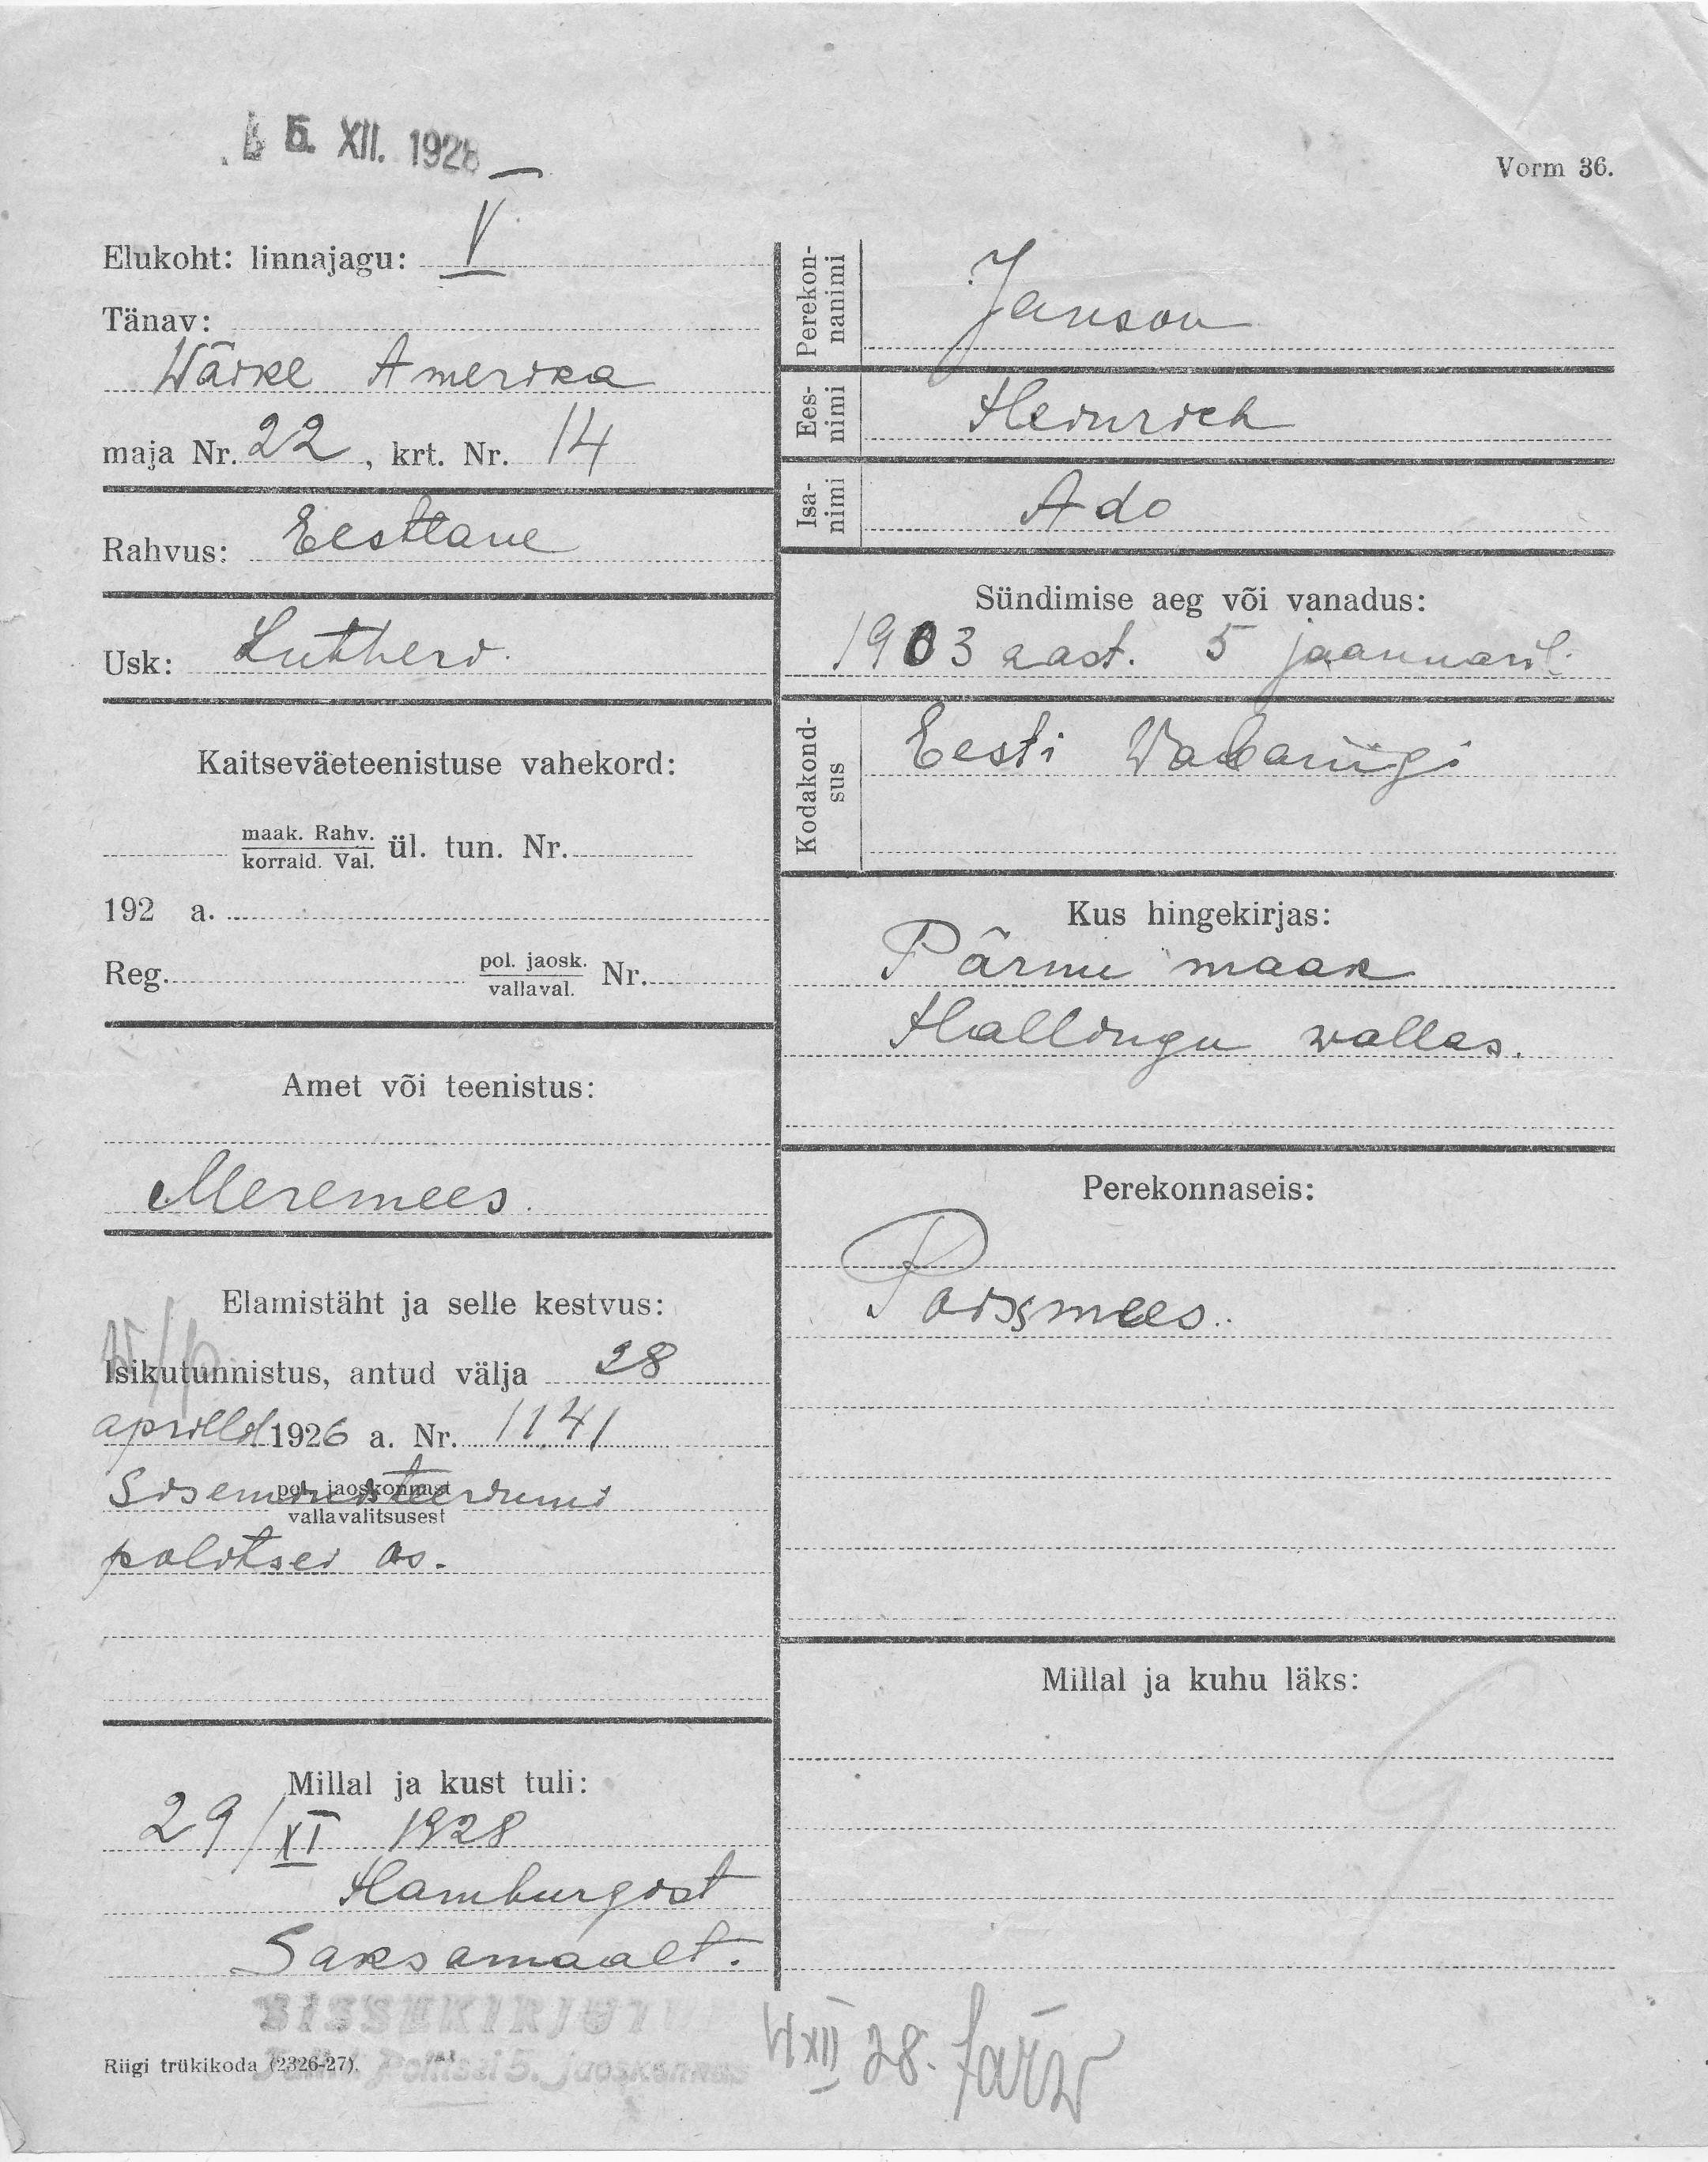 5. XII. 1928
Vorm 36.
Elukoht: linnajagu: V
Tänav:
Wäike Amerika
maja Nr. 22, krt. Nr. 14
Rahvus: Eestlane
Usk: Lutheri.
Kaitseväeteenistuse vahekord:
maak. Rahv.
korrald. Val. ül. tun. Nr.
192 a.
Reg. pol. jaosk.
vallaval. Nr.
Amet või teenistus:
Meremees.
Elamistäht ja selle kestvus:
Isikutunnistus, antud välja 28
aprillil 1926 a. Nr. 1141
pol. jaoskonnast
Siseministeeriumi
vallavalitsusest
politsei os.
Millal ja kust tuli:
29/XI 1928
Hamburgist
Saksamaalt.
Perekon-
nanimi
Janson
Ees-
nimi
Heinrich
Isa-
nimi
Ado
Sündimise aeg või vanadus:
1903 aast. 5 jaanuaril.
Kodakond-
sus
Eesti Wabariigi
Kus hingekirjas:
Pärnu maak
Hallingu wallas.
Perekonnaseis:
Poissmees.
Millal ja kuhu läks:
SISSEKIRJUT
Politsei 5. jaoskonnas
XII 28.
Riigi trükikoda (2326-27).